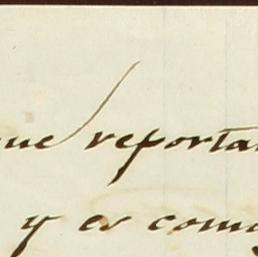 que reportan
y es comu